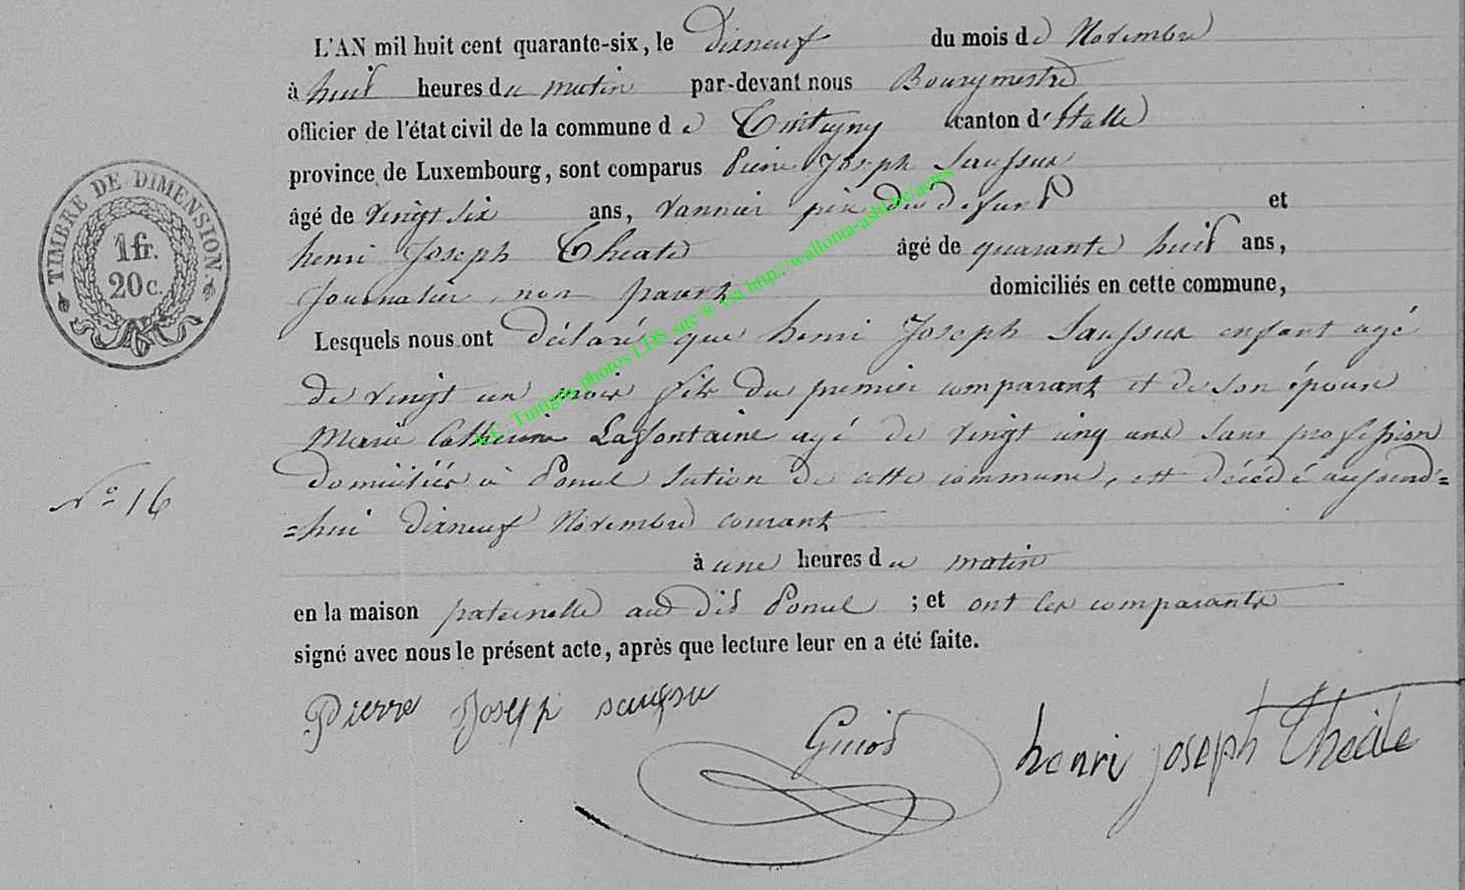 L'AN mil huit cent quarante-six, le dixneuf du mois de Novembre
à huit heures du matin par-devant nous Bourgmestre
officier de l'état civil de la commune de Tintigny canton d'Etalle
province de Luxembourg, sont comparus Pierre Joseph Saussus
âgé de vingt six ans, vannier père du défunt et
henri Joseph Théate âgé de quarante huit ans,
Journalier, non parent domiciliés en cette commune,
Lesquels nous ont déclaré que henri Joseph Saussus enfant agé
de vingt un mois fils du premier comparant et de son épouse
Marie Catherine Lafontaine agé de vingt cinq ans sans profession
domiciliés à Poncel section de cette commune, est décédé aujourd=
=hui dixneuf Novembre courant
à une heures du matin
en la maison paternelle au dit Poncel ; et ont les comparants
signé avec nous le présent acte, après que lecture leur en a été faite.
N° 16
TIMBRE DE DIMENSION.
1 fr.
20 c.
Pierre Joseph
henri joseph Théate
A.C. Tintigny photos LDS suc ® via http://wallonia-asbl.be/actes